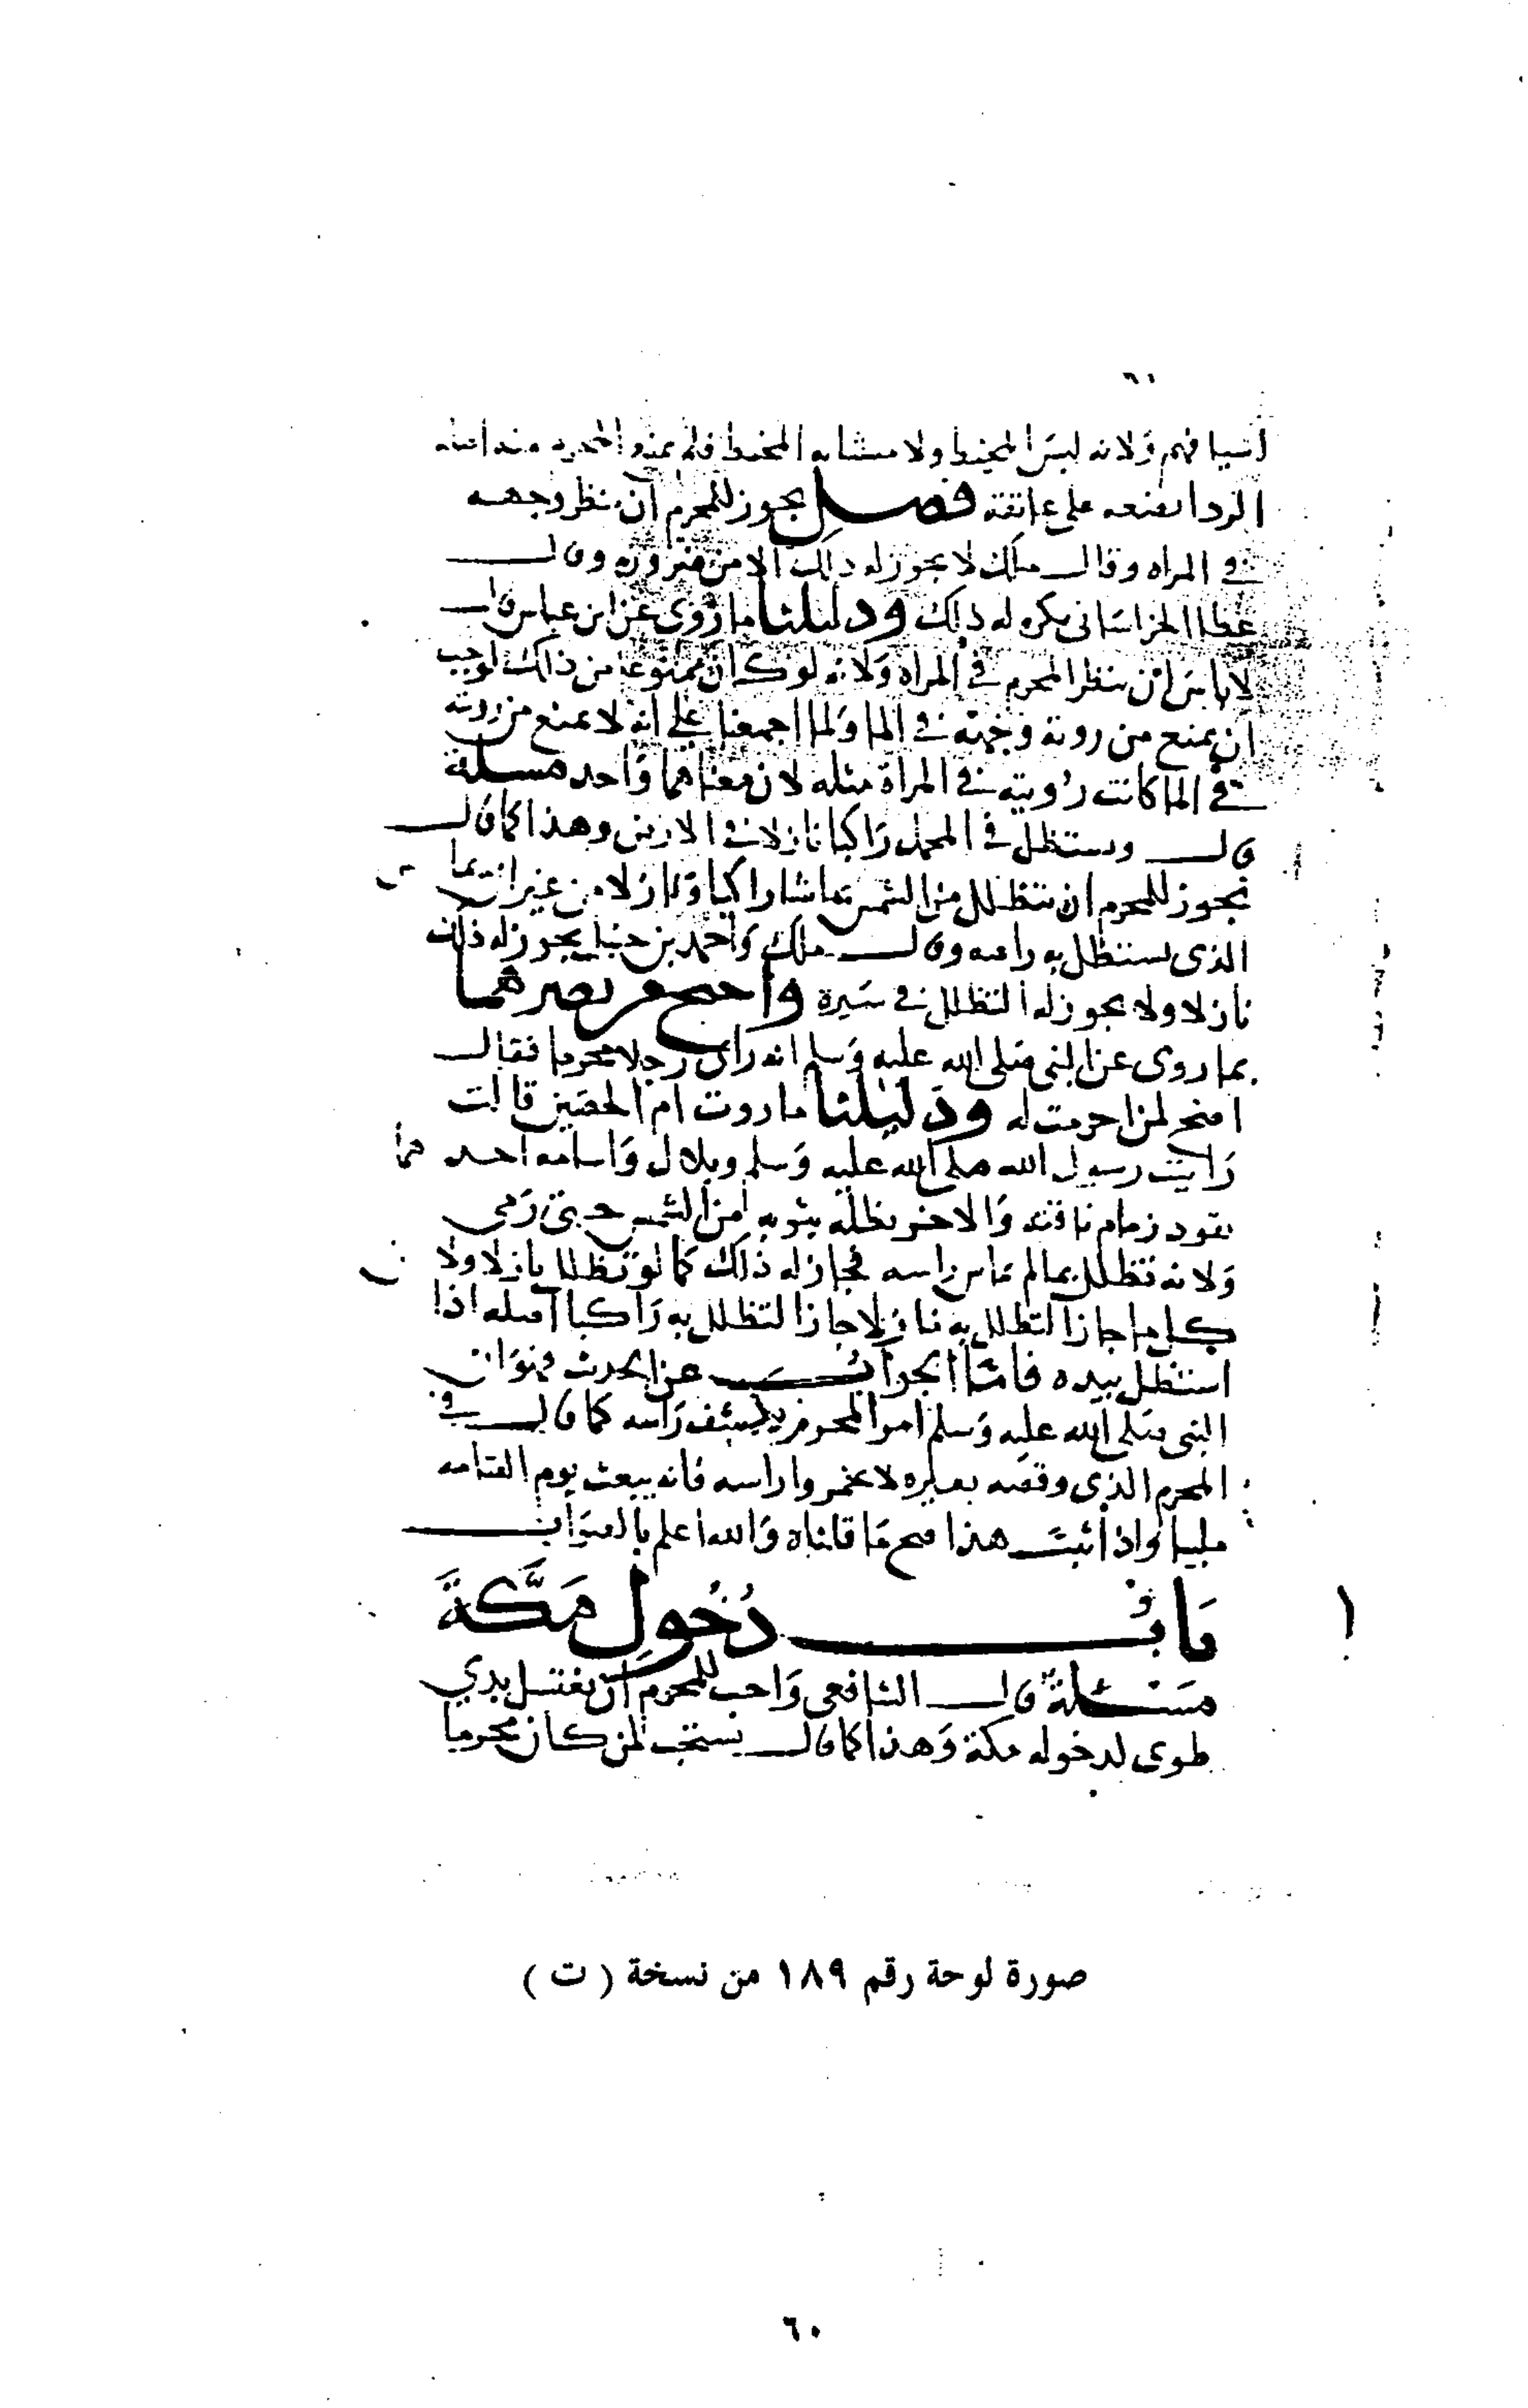 ٦٠
اشيا فهم ولانه ليس المخيط ولا مشابه المخيط فلم يمنع المحرم منه اصله
الردا يضعه على عاتقه فصل يجوز للمحرم ان ينظر وجهه
في المراه وقال ملك لا يجوز له ذلك الا من ضرورة وقال
عطا الخراساني يكره له ذلك ودليلنا ما روى عن ابن عباس قال
لا باس ان ينظر المحرم في المراه ولانه لو كان ممنوعا من ذلك لوجب
ان يمنع من روية وجهه في الما ولما اجمعنا على انه لا يمنع من رويته
في الما كانت رؤيته في المراة مثله لان معناهما واحد مسلة
قال ويستظل في المحمل راكبا نازلا في الارض وهذا كما قال
يجوز للمحرم ان يتظلل من الشمس ماشيا راكبا ونازلا من غير ان يماس
الذي يستظل به راسه وقال ملك واحمد بن حنبل يجوز له ذلك
نازلا ولا يجوز له التظلل في سيره واحتج من نصرهما
بما روى عن النبي صلى الله عليه وسلم انه راى رجلا محرما فقال
اضح لمن احرمت له ودليلنا ما روت ام الحصين قالت
رايت رسول الله صلى الله عليه وسلم وبلال واسامه احدهما
يقود زمام ناقته والاخر يظله بثوبه من الشمس حتى رمى
ولانه تظلل بما لم يماس راسه فجاز له ذلك كما لو تظلل نازلا ولان
كل ما جاز التظلل به نازلا جاز التظلل به راكبا اصله اذا
استظل بيده فاما الجواب عن الحديث فهو ان
النبي صلى الله عليه وسلم امر المحرم بكشف راسه كما قال في
المحرم الذي وقصه بعيره لا تخمروا راسه فانه يبعث يوم القيامه
ملبيا واذا ثبت هذا صح ما قلناه والله اعلم بالصواب
باب دُخُولِ مَكَّةَ
مسئلة قال الشافعي واحب للمحرم ان يغتسل بذي
طوى لدخوله مكة وهذا كما قال يستحب لمن كان محرما
صورة لوحة رقم ١٨٩ من نسخة ( ت )
٦٠